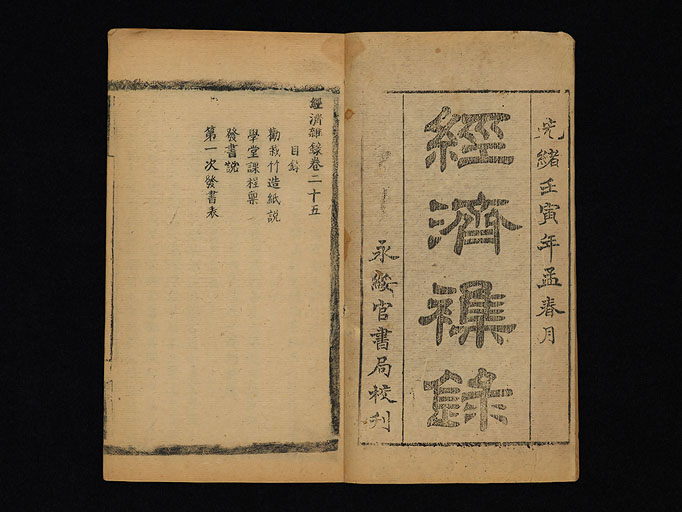 光緒壬寅年孟春月
經濟襍錄
永綏官書局校刋
經濟雜錄卷二十五
目錄
勸栽竹造紙説
學堂課程票
發書説
第一次發書表